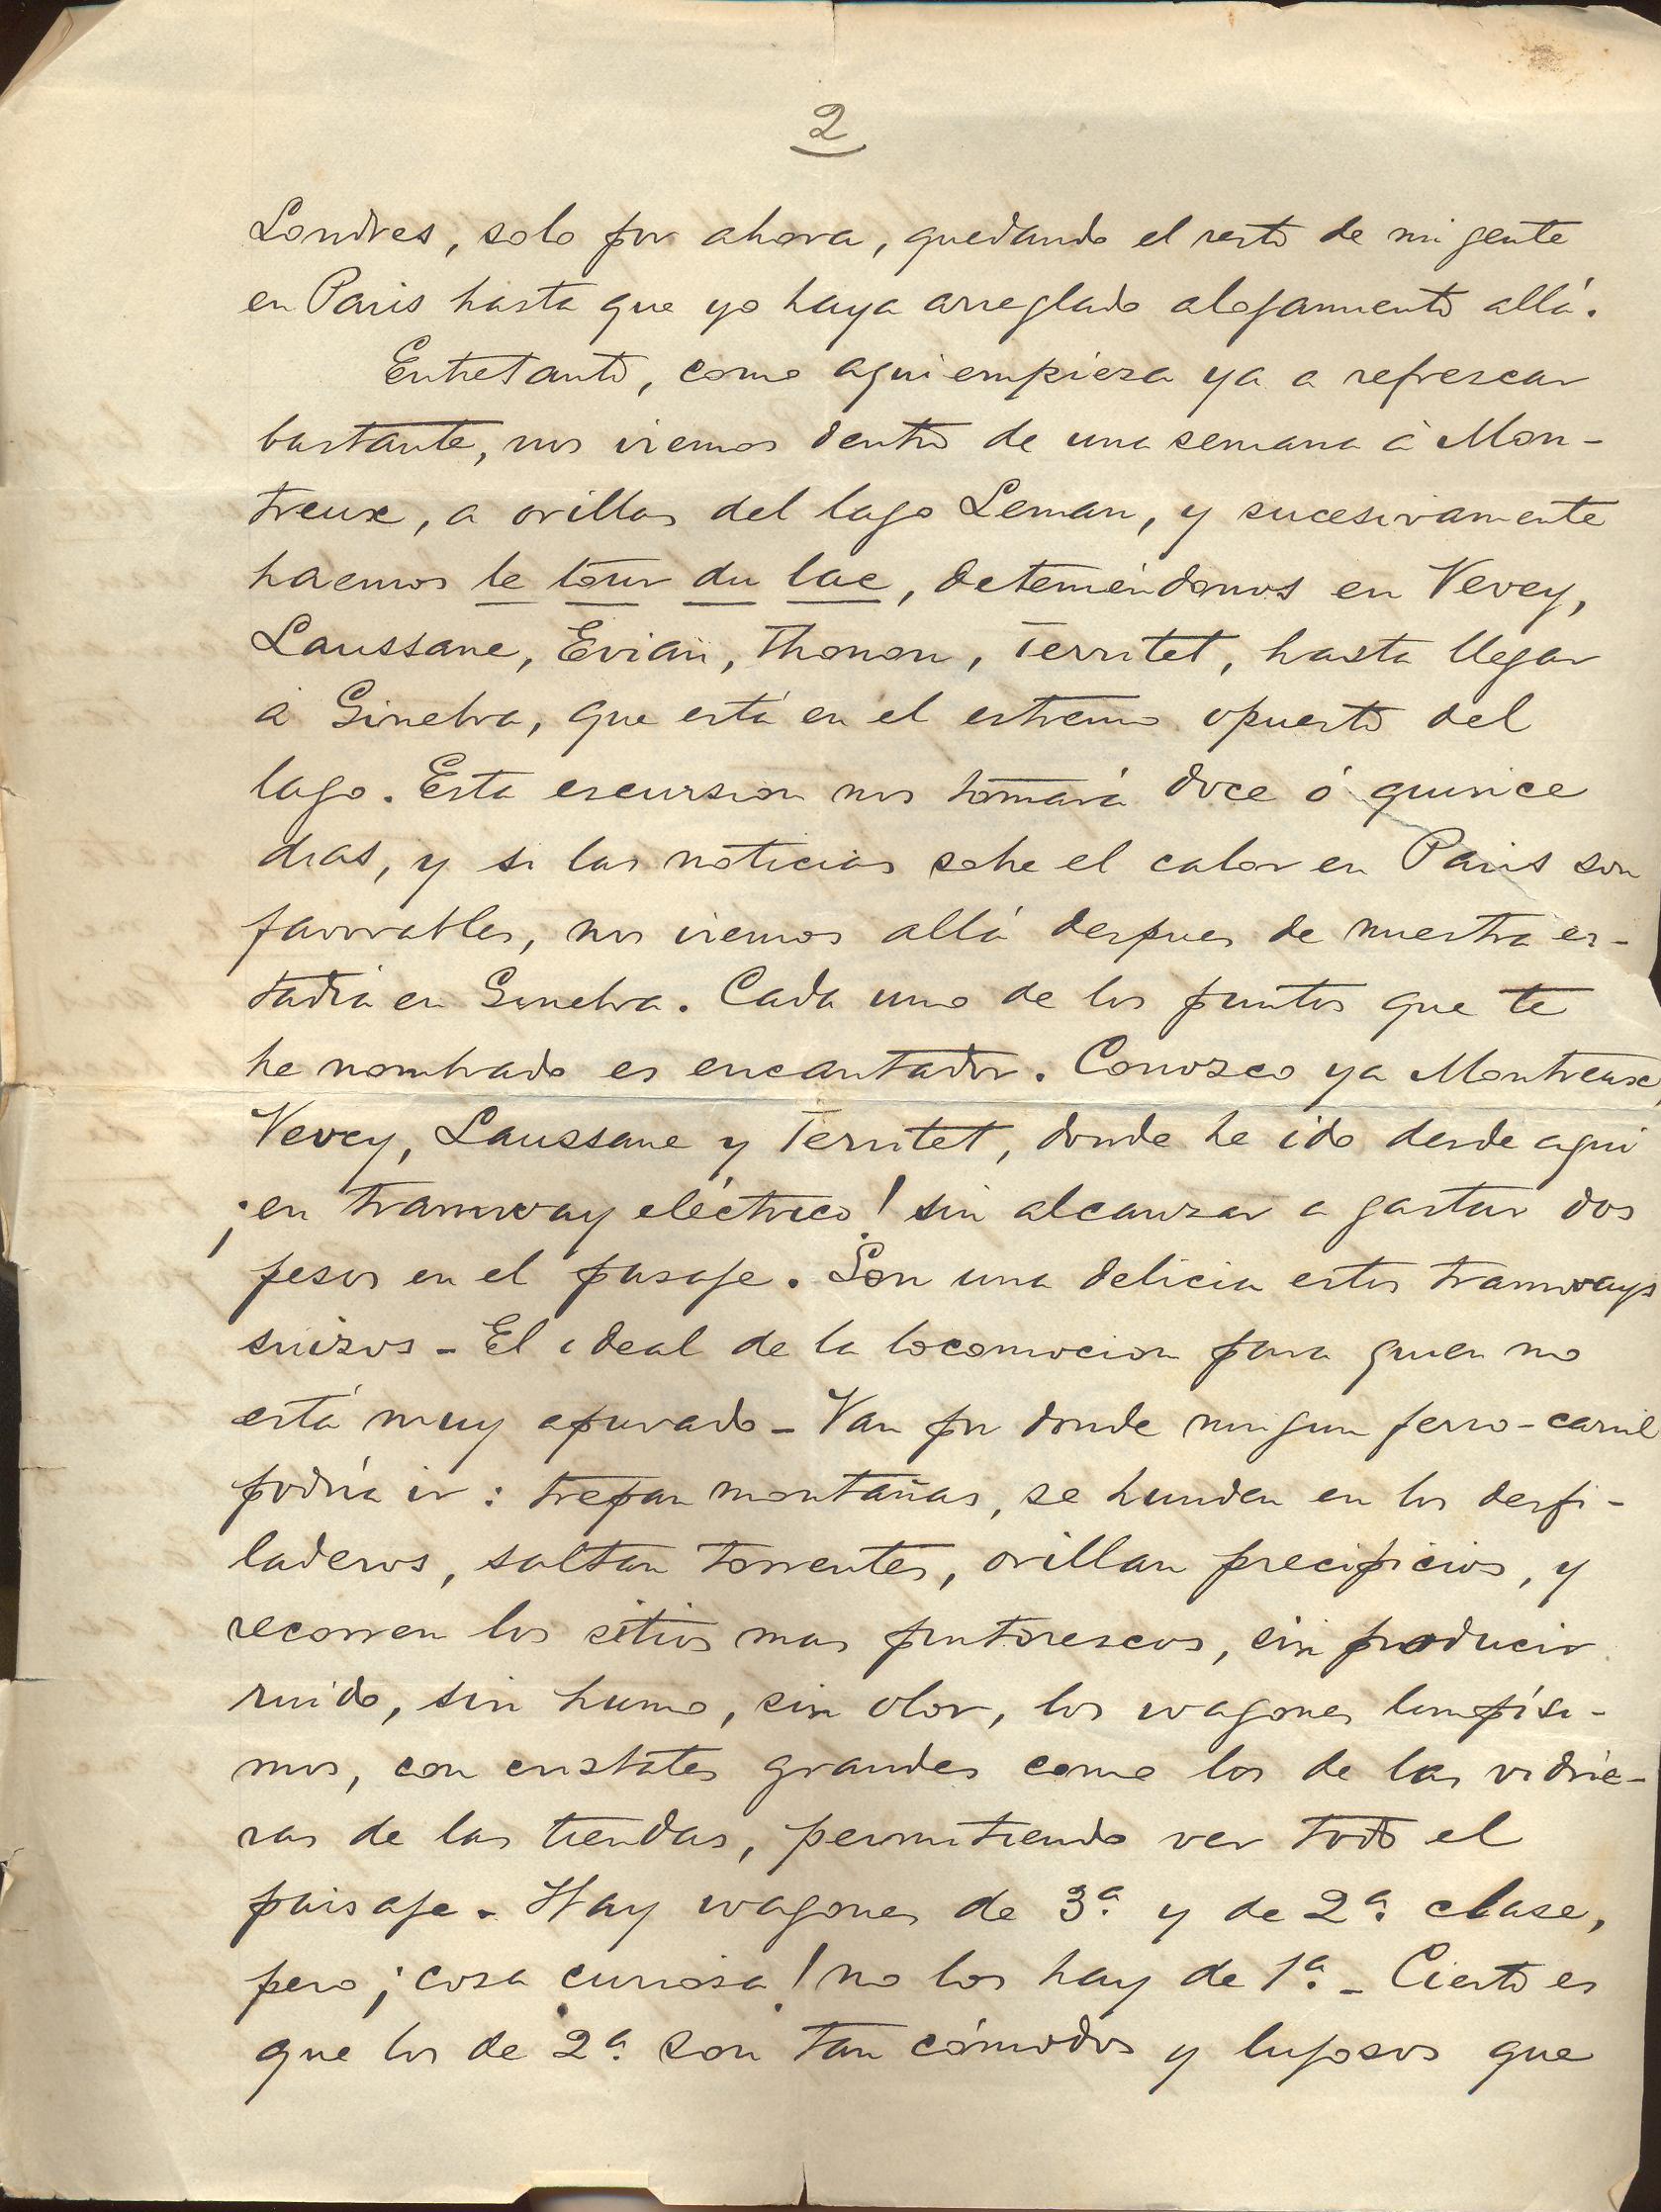 2
Londres, solo por ahora, quedando el resto de mi gente
en Paris hasta que yo haya arreglado alojamiento allá.
Entretanto, como aqui empieza ya a refrescar
bastante, nos iremos dentro de una semana á Mon-
treux, a orillas del lago Leman, y sucesivamente
haremos le tour du lac, deteniéndonos en Vevey,
Laussane, Evian, Thonon, Territet, hasta llegar
á Ginebra, que está en el estremo opuesto del
lago. Esta escursion nos tomará doce ó quince
dias, y si las noticias sobre el calor en Paris son
favorables, nos iremos allá despues de nuestra es-
tadia en Ginebra. Cada uno de los puntos que te
he nombrado es encantador. Conozco ya Montreux,
Vevey, Laussane y Territet, donde he ido desde aqui
¡en tramway eléctrico! sin alcanzar a gastar dos
pesos en el pasaje. Son una delicia estos tramways
suizos - El ideal de la locomocion para quien no
está muy apurado - Van por donde ningun ferro-carril
podría ir: trepan montañas, se hunden en los desfi-
laderos, saltan torrentes, orillan precipicios, y
recorren los sitios mas pintorescos, sin producir
ruido, sin humo, sin olor, los wagones limpísi-
mos, con cristales grandes como los de las vidrie-
ras de las tiendas, permitiendo ver todo el
paisaje - Hay wagones de 3ª y de 2ª clase,
pero ¡cosa curiosa! no los hay de 1ª - Cierto es
que los de 2ª son tan cómodos y lujosos que